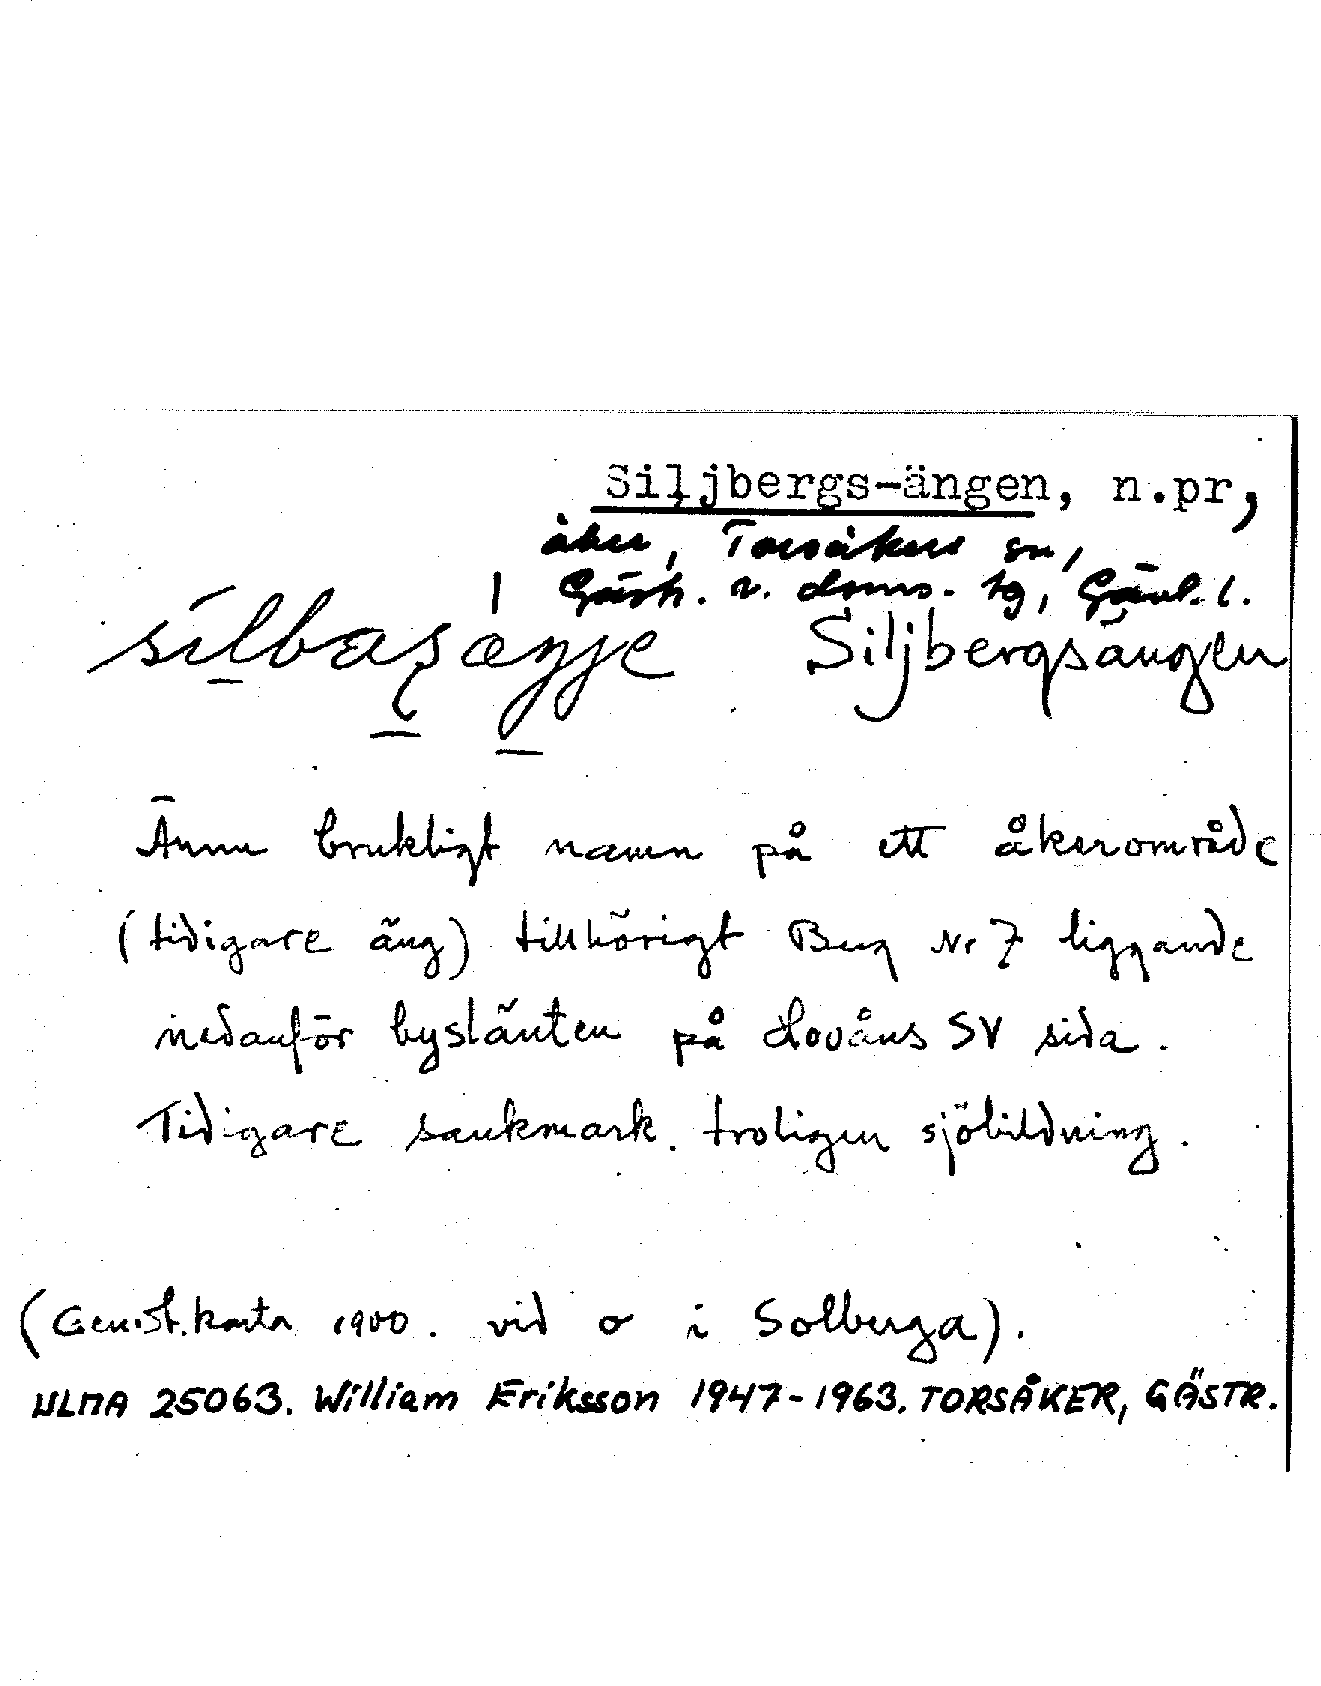 Siljbergs-ängen, n.pr,
åker, Torsåkers sn,
Gästr. v. doms. tg, Gävl. l.
Siljbergsängen
Ännu brukligt namn på ett åkerområde
(tidigare äng) tillhörigt Berg Nr 7 liggande
nedanför byslänten på Hoåns SV sida.
Tidigare sankmark. troligen sjöbildning.
(Gen.St.karta 1900. vid o i Solberga).
ULMA 25063. William Eriksson 1947-1963. TORSÅKER, GÄSTR.